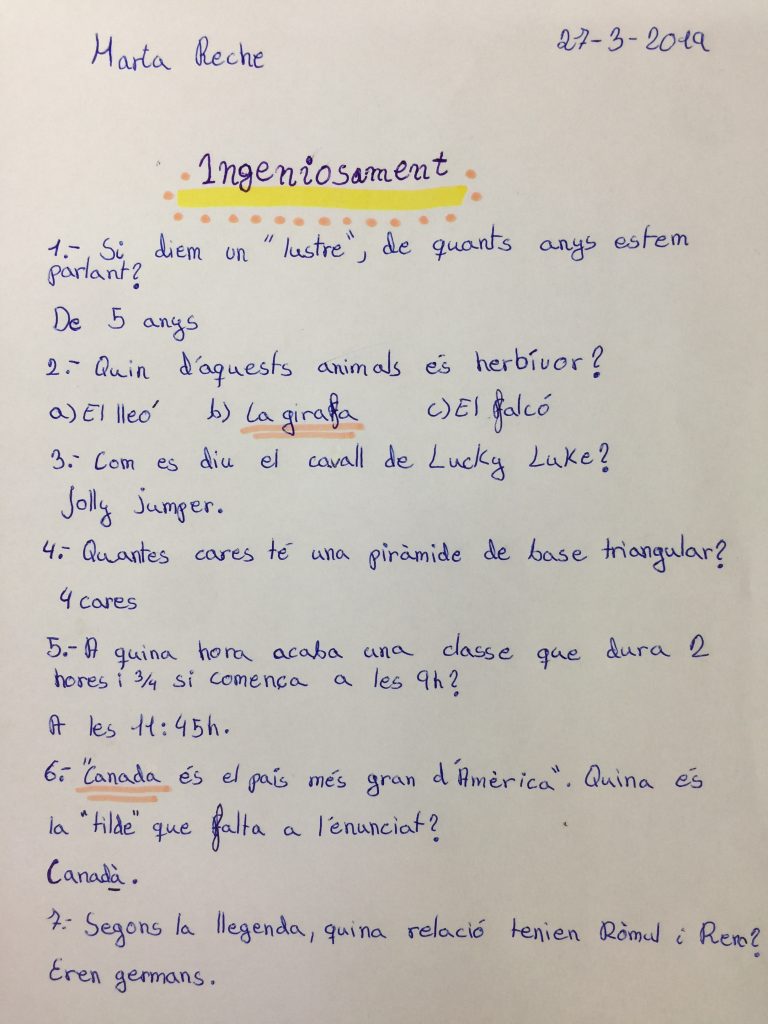 Marta Reche
27-3-2019
Ingeniosament
1.- Si diem un "lustre", de quants anys estem
parlant?
De 5 anys
2.- Quin d'aquests animals és herbívor?
a) El lleó b) La girafa c) El falcó
3.- Com es diu el cavall de Lucky Luke?
Jolly jumper.
4.- Quantes cares té una piràmide de base triangular?
4 cares
5.- A quina hora acaba una classe que dura 2
hores i 3/4 si comença a les 9h?
A les 11:45h.
6.- "Canada és el país més gran d'Amèrica". Quina és
la "tilde" que falta a l'enunciat?
Canadà.
7.- Segons la llegenda, quina relació tenien Ròmul i Rem?
Eren germans.